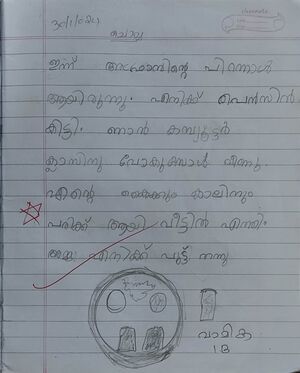 30/1/024
ചൊവ്വ
ഇന്ന് അഫ്രാസിന്റെ പിറന്നാൾ
ആയിരുന്നു. എനിക്ക് പെൻസിൻ
കിട്ടി. ഞാൻ കമ്പ്യൂട്ടർ
ക്ലാസിനു പോകുമ്പോൾ വീണു.
എന്റെ കൈക്കും കാലിനും
പരിക്ക് ആയി വീട്ടിൽ എത്തി
അമ്മ എനിക്ക് പുട്ട് തന്നു
വാമിക
1B